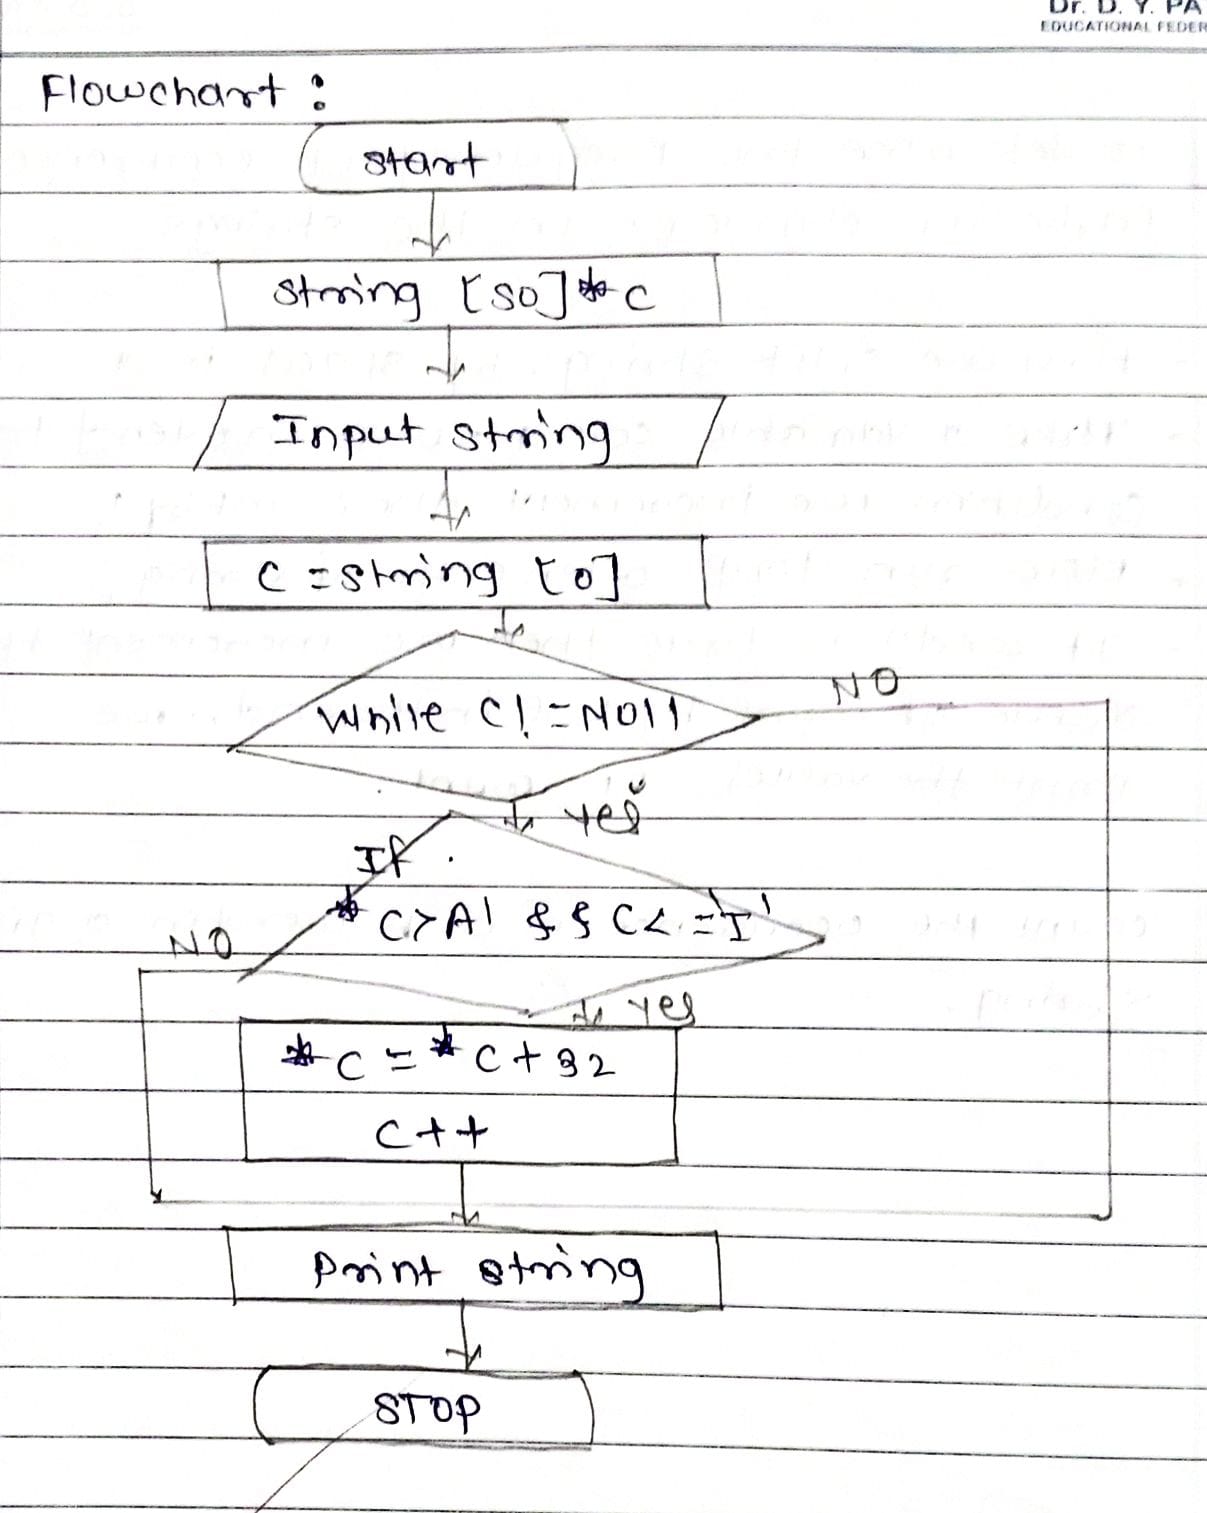 Dr. D. Y. PA
EDUCATIONAL FEDER
Flowchart :
start
string [50] * c
Input string
C = string [0]
While C! = NOll
NO
yes
If
* C>A' && C< ='I'
NO
yes
* C = * C + 32
C++
Print string
STOP